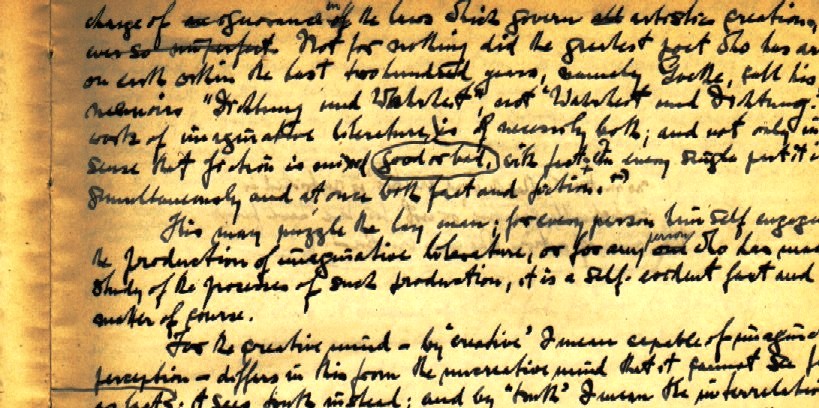 charge of ignorance of the laws which govern all artistic creation,
ever so imperfect. Not for nothing did the greatest poet who has
on earth within the last two hundred years, namely Goethe, call his
memoirs "Dichtung und Wahrheit", not "Wahrheit und Dichtung."
work of imaginative literature is of necessity both; and not only in
sense that fiction is mixed (good or bad,) with fact: in every single part it
simultaneously and at once both fact and fiction.
This may puzzle the lay man; for every person himself engage
the production of imaginative literature, or for any person who has
study of the processes of such production, it is a self-evident fact and
matter of course.
For the creative mind - by "creative" I mean capable of
perception - differs in this from the uncreative mind that it cannot see
as facts: it sees truth instead; and by "truth" I mean the interrelation